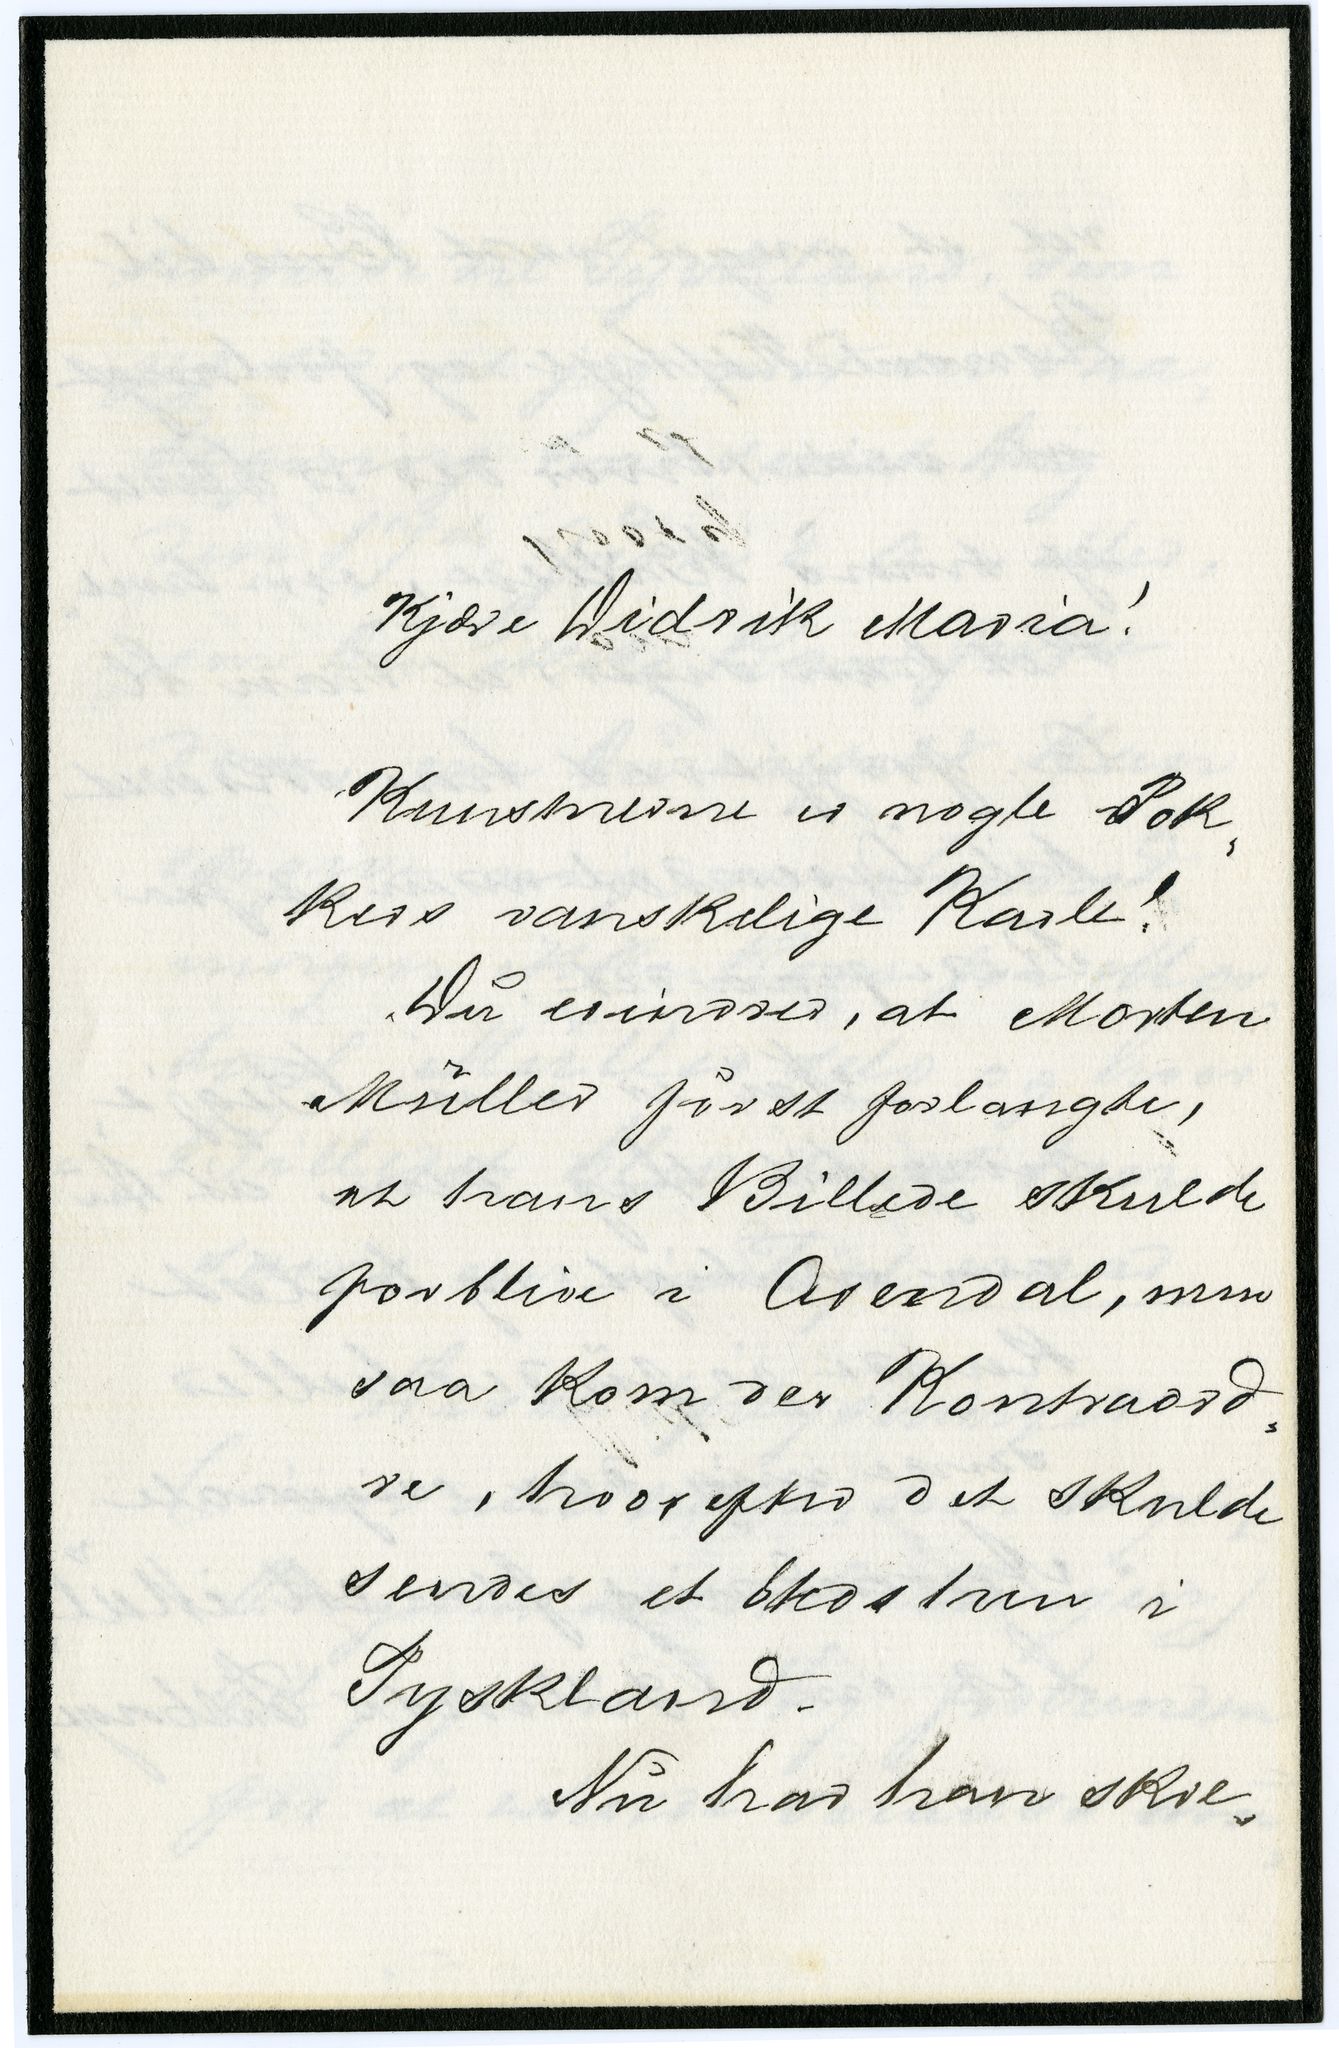 Kjære Didrik Maria!
Kunstnerne er nogle Pok-
kers vanskelige Karle!
Du erindrer, at Morten
Müller først forlangte,
at hans Billede skulde
forblive i Arendal, men
saa kom der Kontraord-
re, hvorefter det skulde
sendes et stedshen i
Tyskland.
Nu har han skre-